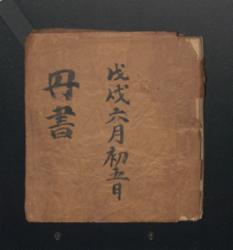 戊戌六月初五日
丹書